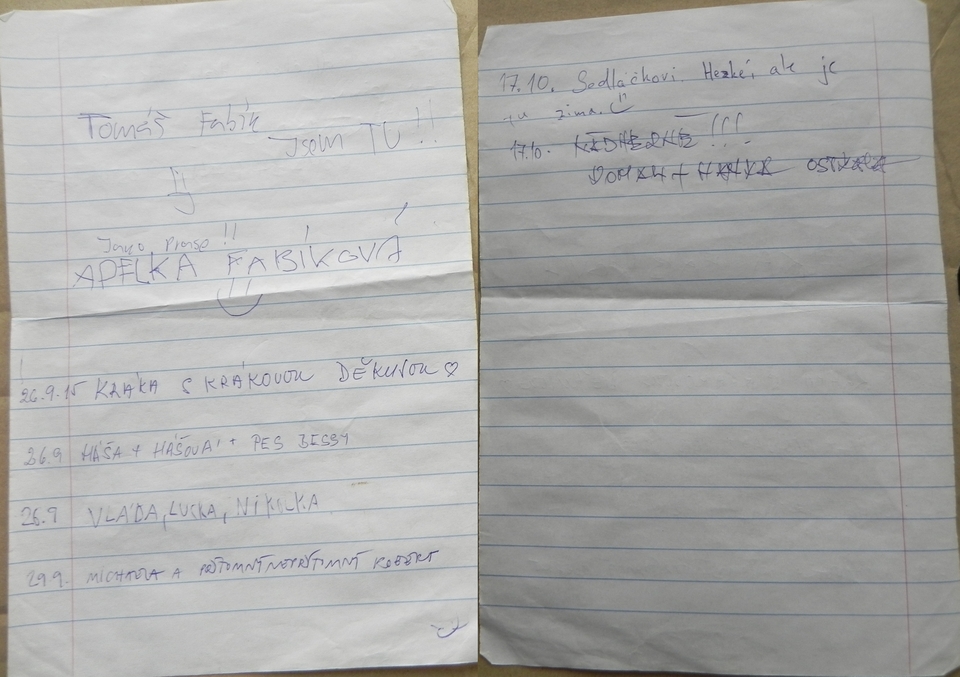 Tomáš Fabík
Jsem TU !!
Jako Prase !!
ADÉLKA FABÍKOVÁ
26.9.15 KRÁKA S KRÁKOVOU DĚKUJOU ♡
26.9 HÁŠA + HÁŠOVÁ + PES BESSY
26.9 VLÁĎA, LUCKA, NIKOLKA
29.9. MICHAELA A PŘÍTOMNÝ NEPŘÍTOMNÝ ROBERT
17.10. Sedláčkovi. Hezké, ale je
tu zima.
17.10. NÁDHERNĚ !!!
+ HANKA